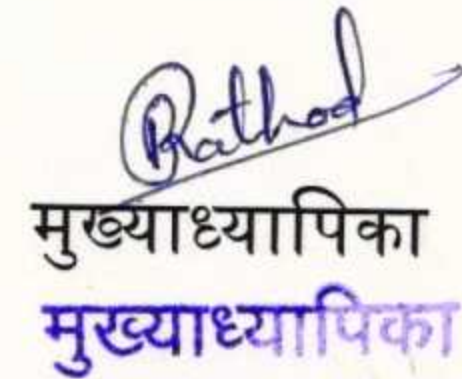 Rathod
मुख्याध्यापिका
मुख्याध्यापिका